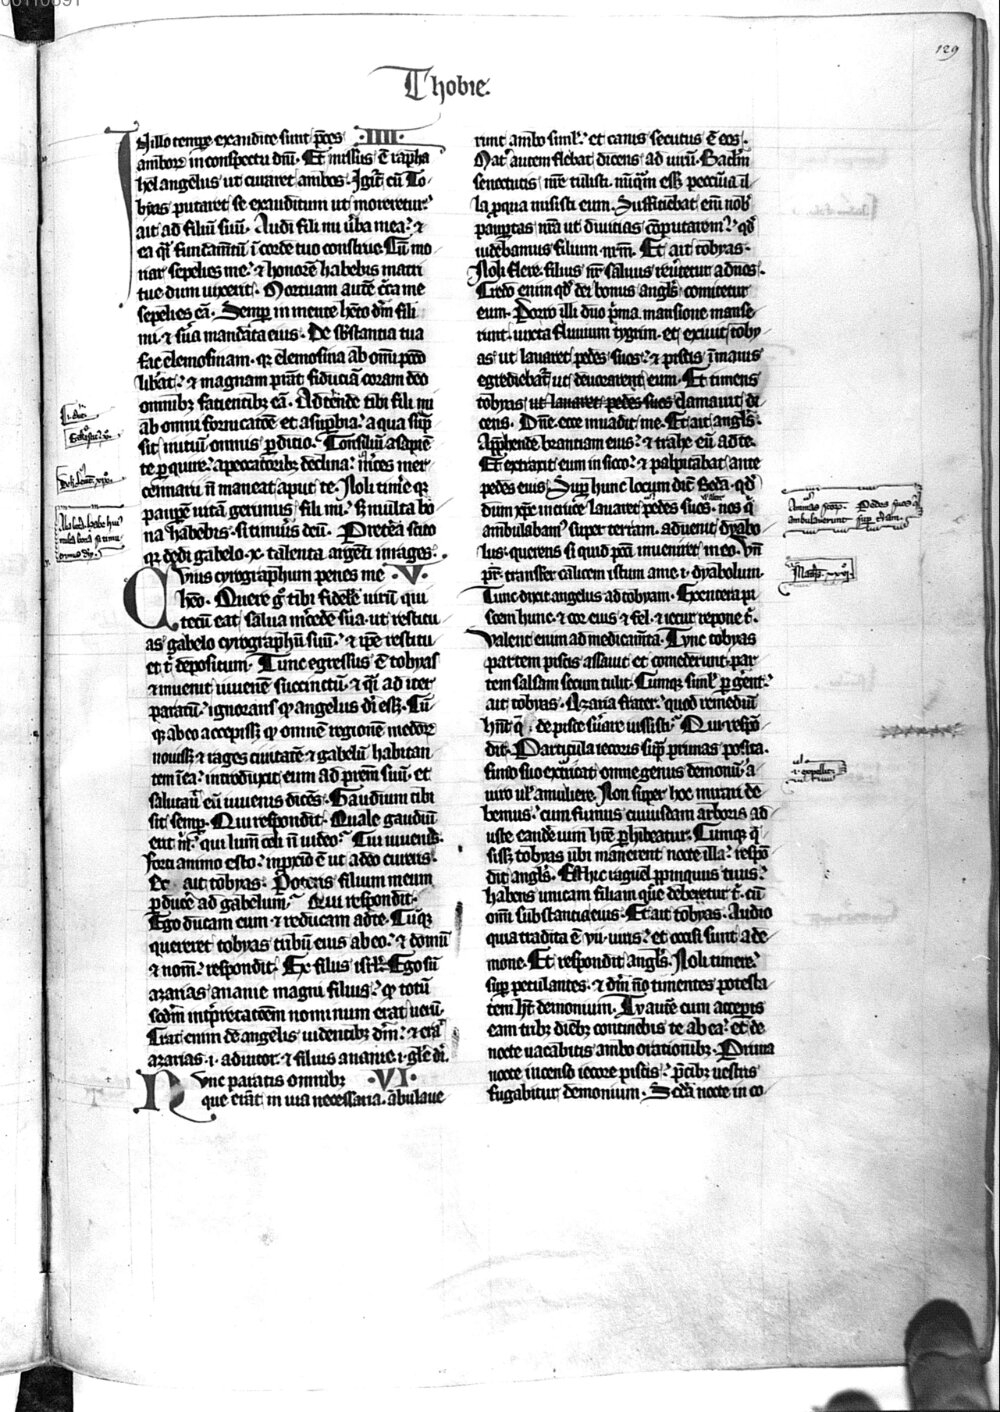 129
Thobie.
IN illo tempore exaudite sunt p̄ces ·IIII·
amborū in conspectu dn̄i. Et missus ē rapha
hel angelus ut curaret ambos. Igit̄ cū To
byas putaret se exauditum ut moreretur
ait ad filiū suū. Audi fili mi v̄ba mea: ⁊
ea q̄ſi fundam̄tū ī corde tuo construe. Cū mo
riar sepelies me: ⁊ honorē habebis matri
tue dum vixerit. Mortuam autē c̄ca me
sepelies eā. Semp in mente hēto dm̄ fili
mi. ⁊ sūa mandata eius. De sbstantia tua
fac elemosinam. q̄ elemosina ab om̄i pctō
lib̄at: ⁊ magnam p̄stāt fiduciā coram deo
omnibꝫ facientibꝫ eā. Adtende tibi fili mi
ab omni fornicatōe et a sup̄bia: a qua sūp
sit initiū omnis p̄ditio. Consiliū a sapiē
te p̄quire: a peccatoribꝫ declina: m̄ces mer
cennarii n̄ maneat aput te. Noli tim̄e q̄
paup̄em vitā gerimus fili mi: S; multa bo
na habebis. si timu̇is deū. Pretēa scito
q̄ dedi gabelo .x. talenta argēti īmages:
Cuius cyrographum penes me ·V·
hēo. Quere g̊ tibi fidelē virū qui
tecū eat salua m̄cede sua. ut restitu
as gabelo cyrographū suū: ⁊ ip̄e restitu
et t̄ depositum. Tunc egressus ē tobyas
⁊ inuenit iuuenē succinctū. ⁊ q̄ſi ad iter
paratū: ignorans q̄ angelus dī ess;. Cū
q̄ ab eo accepiss; q̄ omnē regionē medor̄
nouiss; ⁊ rages ciuitatē ⁊ gabelū habitan
tem ī ea: introduxit eum ad p̄rem suū. et
salutauit eū iuuenis dicēs. Gaudium tibi
sit semp. Qui respondit. Quale gaudiū
erit m̄. qui lum̄ celi n̄ video: Cui iuuenis.
Forti animo esto: in p̄xīo ē ut a deo cureris.
Et ait tobyas. Poteris filium meum
p̄ducē ad gabelum: Qui respondit.
Ego ducam eum ⁊ reducam ad te. Cūq̄
quereret tobyas tribū eius ab eo: ⁊ domū
⁊ nom̄: respondit. Ex filiis isrl̄. Ego sū
azarias ananie magni filius: q̄ totū
scdm̄ intp̄retatōem nominum erat verū.
Erat enim dē angelus videntibꝫ dm̄: ⁊ erat
azarias .i. adiutor. ⁊ filius ananie .i. gl̄e dī.
Nunc paratis omnibꝫ ·VI·
que erāt in via necessaria. ābulaue
runt ambo simł: et canis secutus ē eos.
Mat̄ autem flebat dicens ad virū. Baclm̄
senectutis nr̄e tulisti. nūq̄m ess; peccūia il
la p̄ qua misisti eum. Sufficiebat ēm nob̄
paup̄tas nr̄a ut diuitias cōputarem̄: qd̄
videbamus filium nr̄m. Et ait tobyas.
Noli flere. filius nr̄ saluus reu̇tetur ad nos.
Credo enim qd̄ dei bonus angl̄s comitetur
eum. Porro illi duo p̄ma mansione manse
runt iuxta fluuium tygrim. et exiuit toby
as ut lauaret pedes suos: ⁊ piscis īmanis
egrediebat̄ ut deuoraret eum. Et timens
tobyas ut lauaret pedes suos clamauit di
cens. Dn̄e. ecce inuadit me. Et ait angl̄s.
Apprhende branciam eius: ⁊ trahe eū ad te.
Et extraxit eum in sicco: ⁊ palpitabat ante
pedes eius. Sup hunc locum dic̄ Beda. qd̄
dum xp̄c inciuit lauaret pedes suos. nos q̄
ambulabam̄ super terram. aduenit dyabo
lus. querens si quid pctī inueniret in eo. Vn̄
pr̄. transfer calicem istum a me .i. dyabolum.
Tunc dixit angelus ad tobyam. Exentera pi
scem hunc. ⁊ cor eius ⁊ fel. ⁊ iecur repone t̄.
Valent enim ad medicam̄ta. Tunc tobyas
partem piscis assauit et comederunt. par
tem salsam secum tulit. Cumq̄ simł p̄gent.
ait tobyas. Azaria frater: quod remediū
hn̄t q̄ de pisce su̇are iussisti: Qui respō
dit. Particula iecoris sup̄ prunas posita.
fumo suo extricat omne genus demonū. a
viro ul̄ a muliere. Non super hoc mirari de
bemus: cum fumus cuiusdam arboris ad
uste eandē vim hr̄e p̄hibeatur. Cumq̄ q̄
siss; tobyas ubi manerent nocte illa: respō
dit angl̄s. Est hic raguel p̄pinquus tuus:
habens unicam filiam que debetur t̄. cū
om̄i substantia eius. Et ait tobyas. Audio
quia tradita ē .vii. viris: et occisi sunt a de
mone. Et respondit angl̄s. Noli timere:
sup petulantes. ⁊ dm̄ nō timentes potesta
tem hꝫ demonium. Tu autē cum accepis
eam tribꝫ diebꝫ continebis te ab ea: et de
nocte vacabitis ambo orationibꝫ. Prima
nocte incenso iecore piscis: p̄cibꝫ vestris
fugabitur demonium. Scda nocte in co